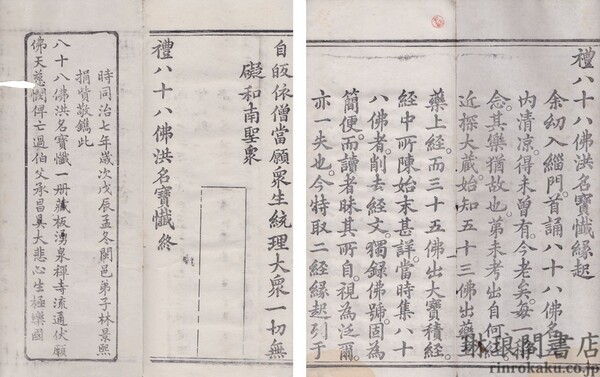 禮八十八佛洪名寶懺緣起
余幼入緇門首誦八十八佛名
内清凉得未曾有今老矣每一稱
念其樂猶故也第未考出自何經
近探大藏始知五十三佛出藥王
藥上經而三十五佛出大寶積經
經中所陳始末甚詳當時集八十
八佛者削去經文獨録佛號固為
簡便而讀者昧其所自視為泛爾
亦一失也今特取二經緣起列于
自皈依僧當願衆生統理大衆一切無
礙和南聖衆
禮八十八佛洪名寶懺終
時同治七年歲次戊辰孟冬閩邑弟子林景熙
捐貲敬鐫此
八十八佛洪名寶懺一册藏板湧泉禪寺流通伏願
佛天慈憫俾亡過伯父承昌奠大悲心生極樂國
琳琅閣書店
rinrokaku.co.jp